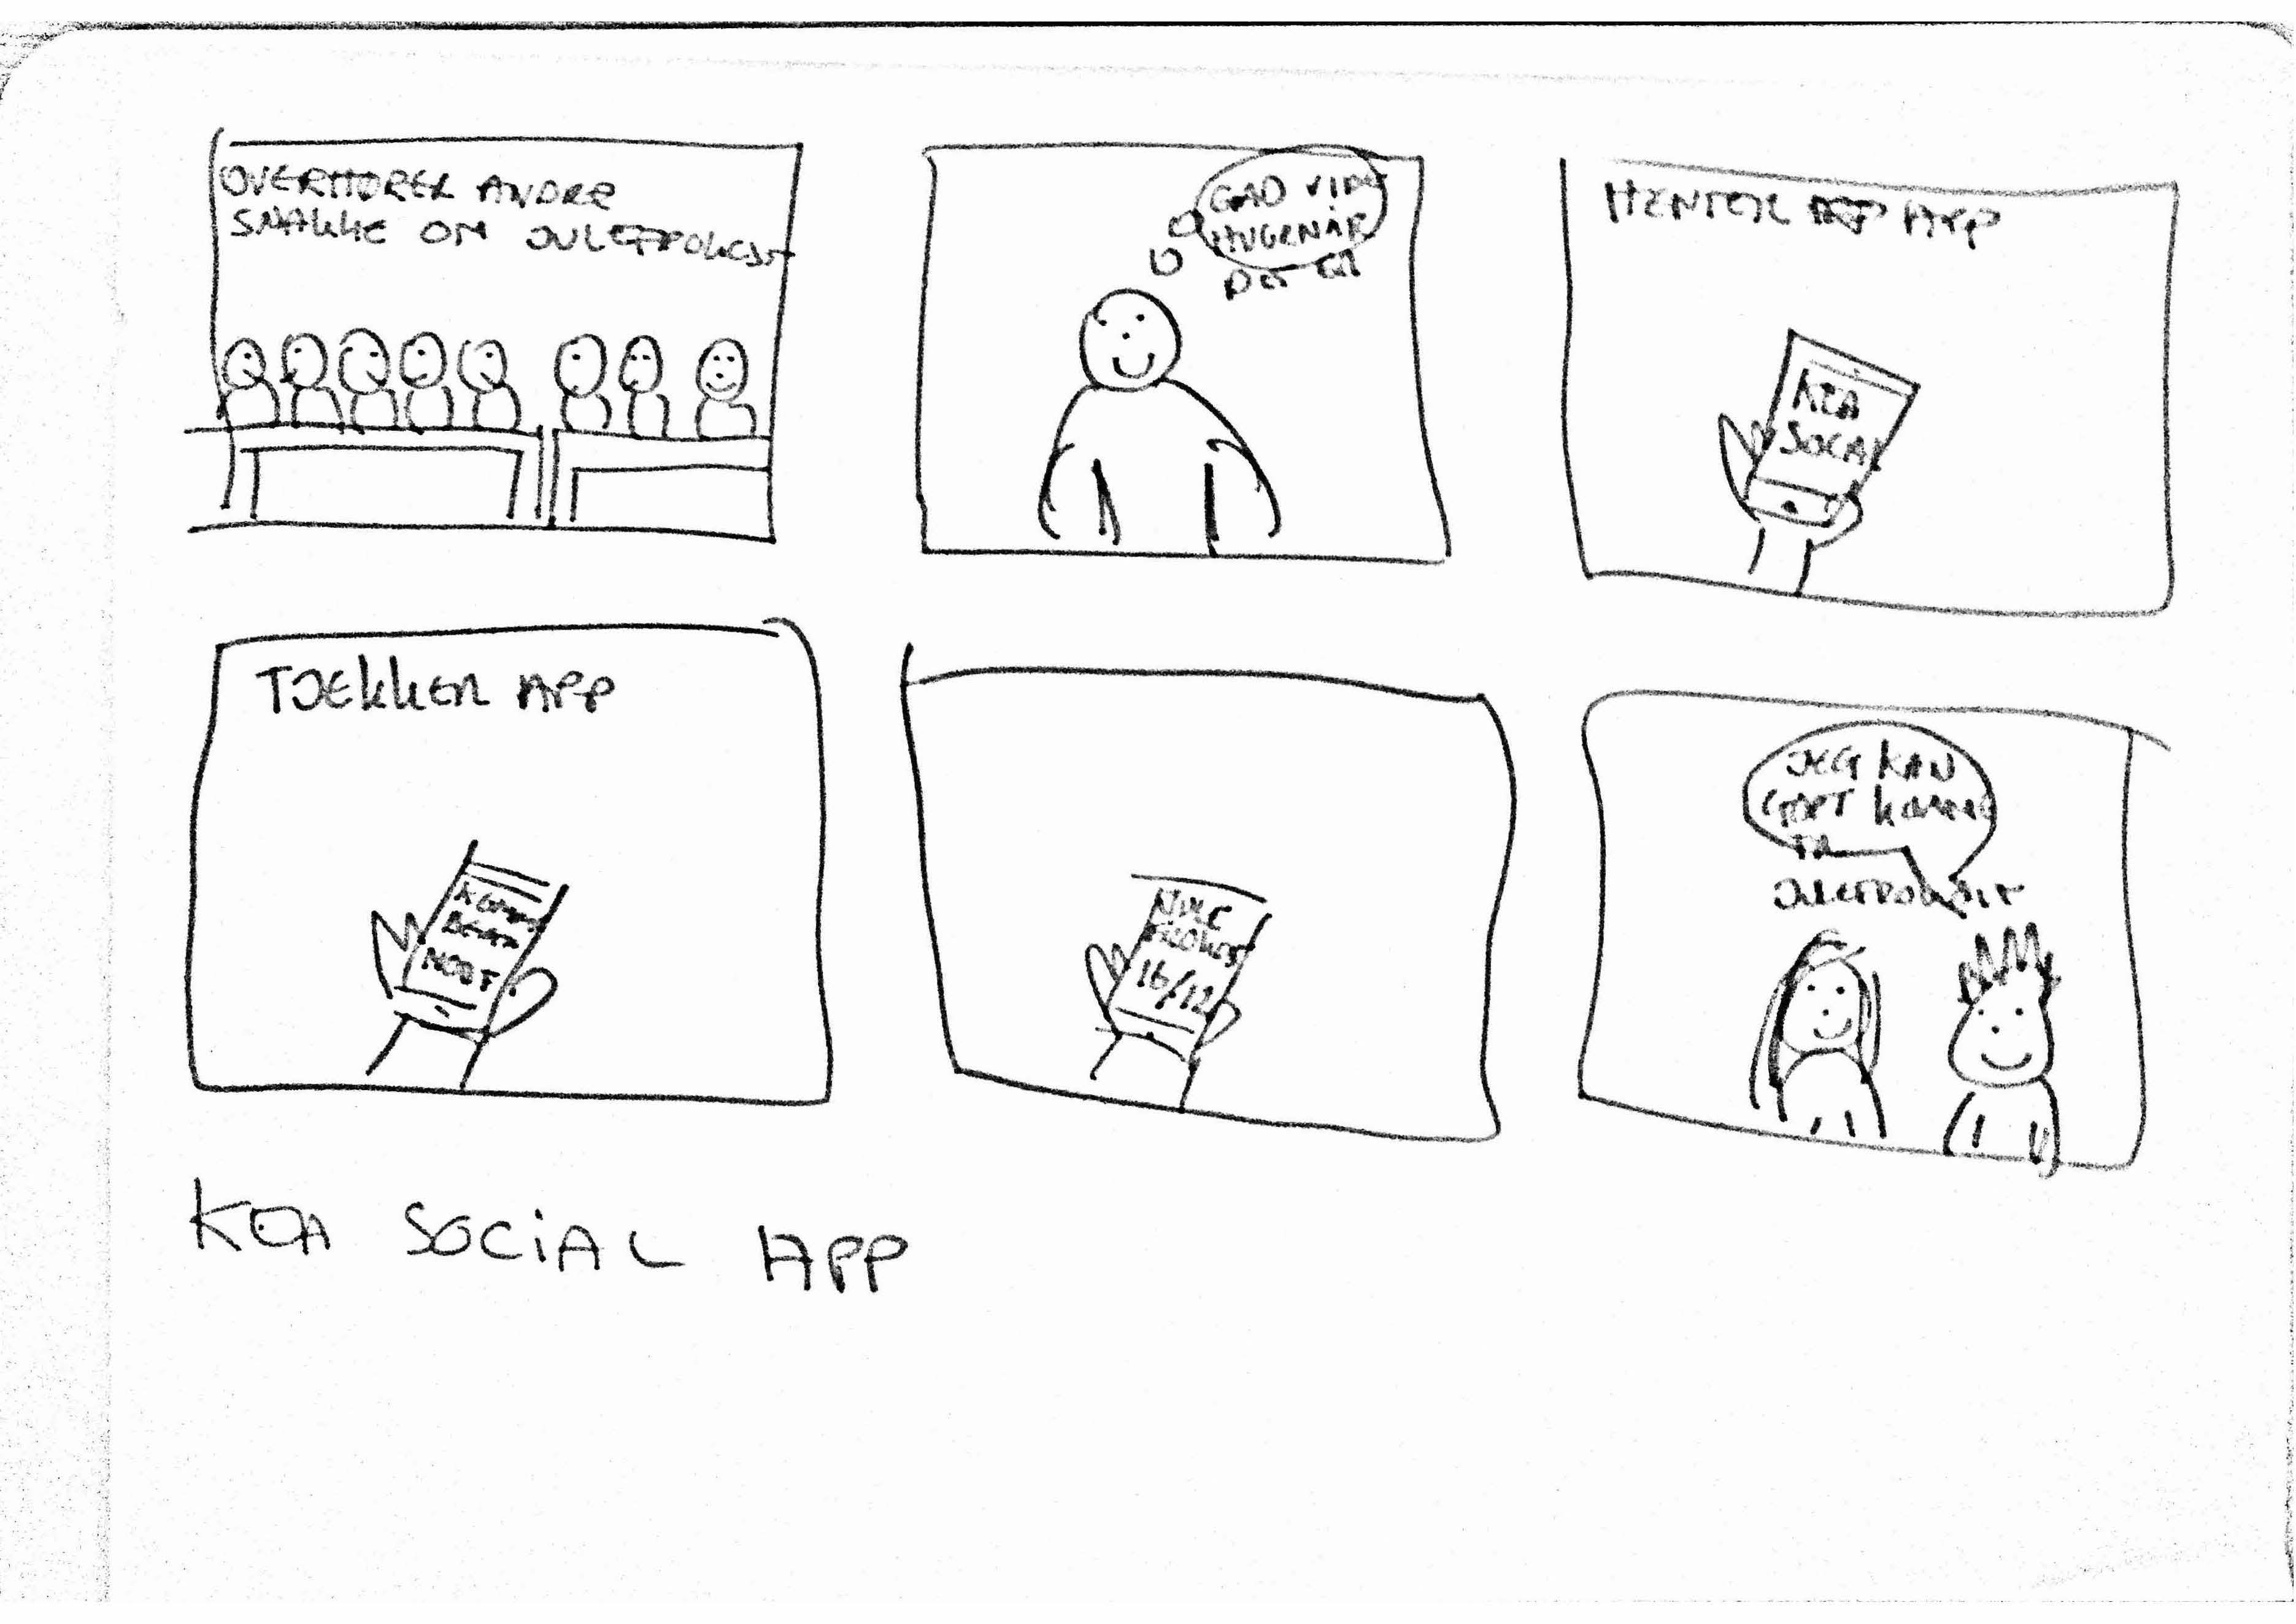 OVERHØRER ANDRE
SNAKKE OM JULEFROKOST
GAD VIDE
HVORNÅR
DET ER
HENTER APP
KEA
SOCIAL
TJEKKER APP
16/12
JEG KAN
GODT KOMME
TIL
JULEFROKOST
KEA SOCIAL APP